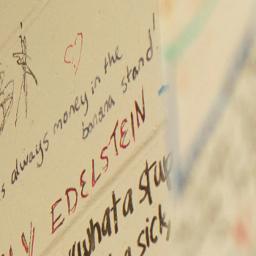 always money in the
banana stand!
EDELSTEIN
what a
a sick